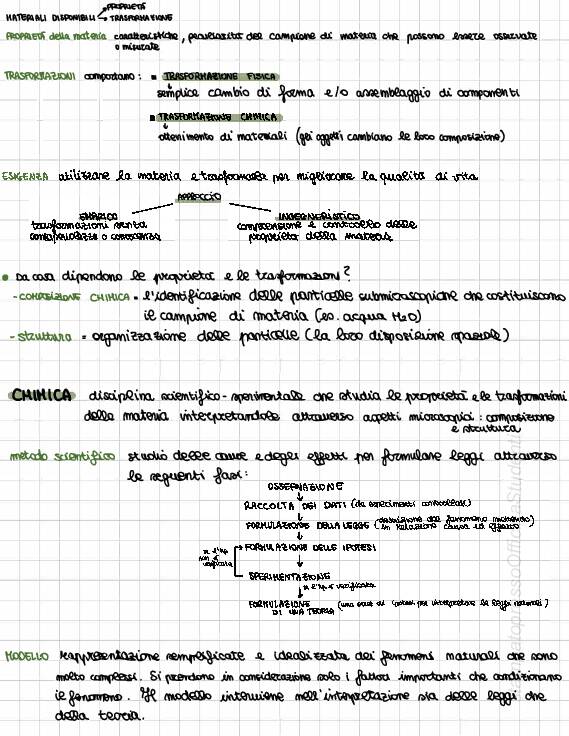 PROPRIETÀ
MATERIALI DISPONIBILI TRASFORMAZIONE
PROPRIETÀ della materia caratteristiche, peculiarità del campione di materia che possono essere osservate
o misurate
TRASFORMAZIONI comportano: TRASFORMAZIONE FISICA
semplice cambio di forma e/o assemblaggio di componenti
TRASFORMAZIONE CHIMICA
ottenimento di materiali (gli oggetti cambiano la loro composizione)
ESIGENZA utilizzare la materia e trasformarla per migliorare la qualità di vita
APPROCCIO
EMPIRICO INGEGNERISTICO
trasformazioni senza comprensione e controllo delle
consapevolezza o conoscenza proprietà della materia
• Da cosa dipendono le proprietà e le trasformazioni?
- COMPOSIZIONE CHIMICA = l'identificazione delle particelle submicroscopiche che costituiscono
il campione di materia (es. acqua H₂O)
- struttura = organizzazione delle particelle (la loro disposizione spaziale)
CHIMICA disciplina scientifico-sperimentale che studia le proprietà e le trasformazioni
della materia interpretandole attraverso aspetti microscopici: composizione
e struttura
metodo scientifico studio delle cause e degli effetti per formulare leggi attraverso
le seguenti fasi:
OSSERVAZIONE
RACCOLTA DEI DATI (da esperimenti controllati)
FORMULAZIONE DELLA LEGGE (descrizione del fenomeno mettendo
in relazione causa ed effetto)
FORMULAZIONE DELLE IPOTESI
se l'hp
non è
verificata
SPERIMENTAZIONE
se l'hp è verificata
FORMULAZIONE (una serie di ipotesi per interpretare le leggi naturali)
DI UNA TEORIA
MODELLO rappresentazione semplificate e idealizzata dei fenomeni naturali che sono
molto complessi. Si prendono in considerazione solo i fattori importanti che condizionano
il fenomeno. Il modello interviene nell'interpretazione sia delle leggi che
della teoria.